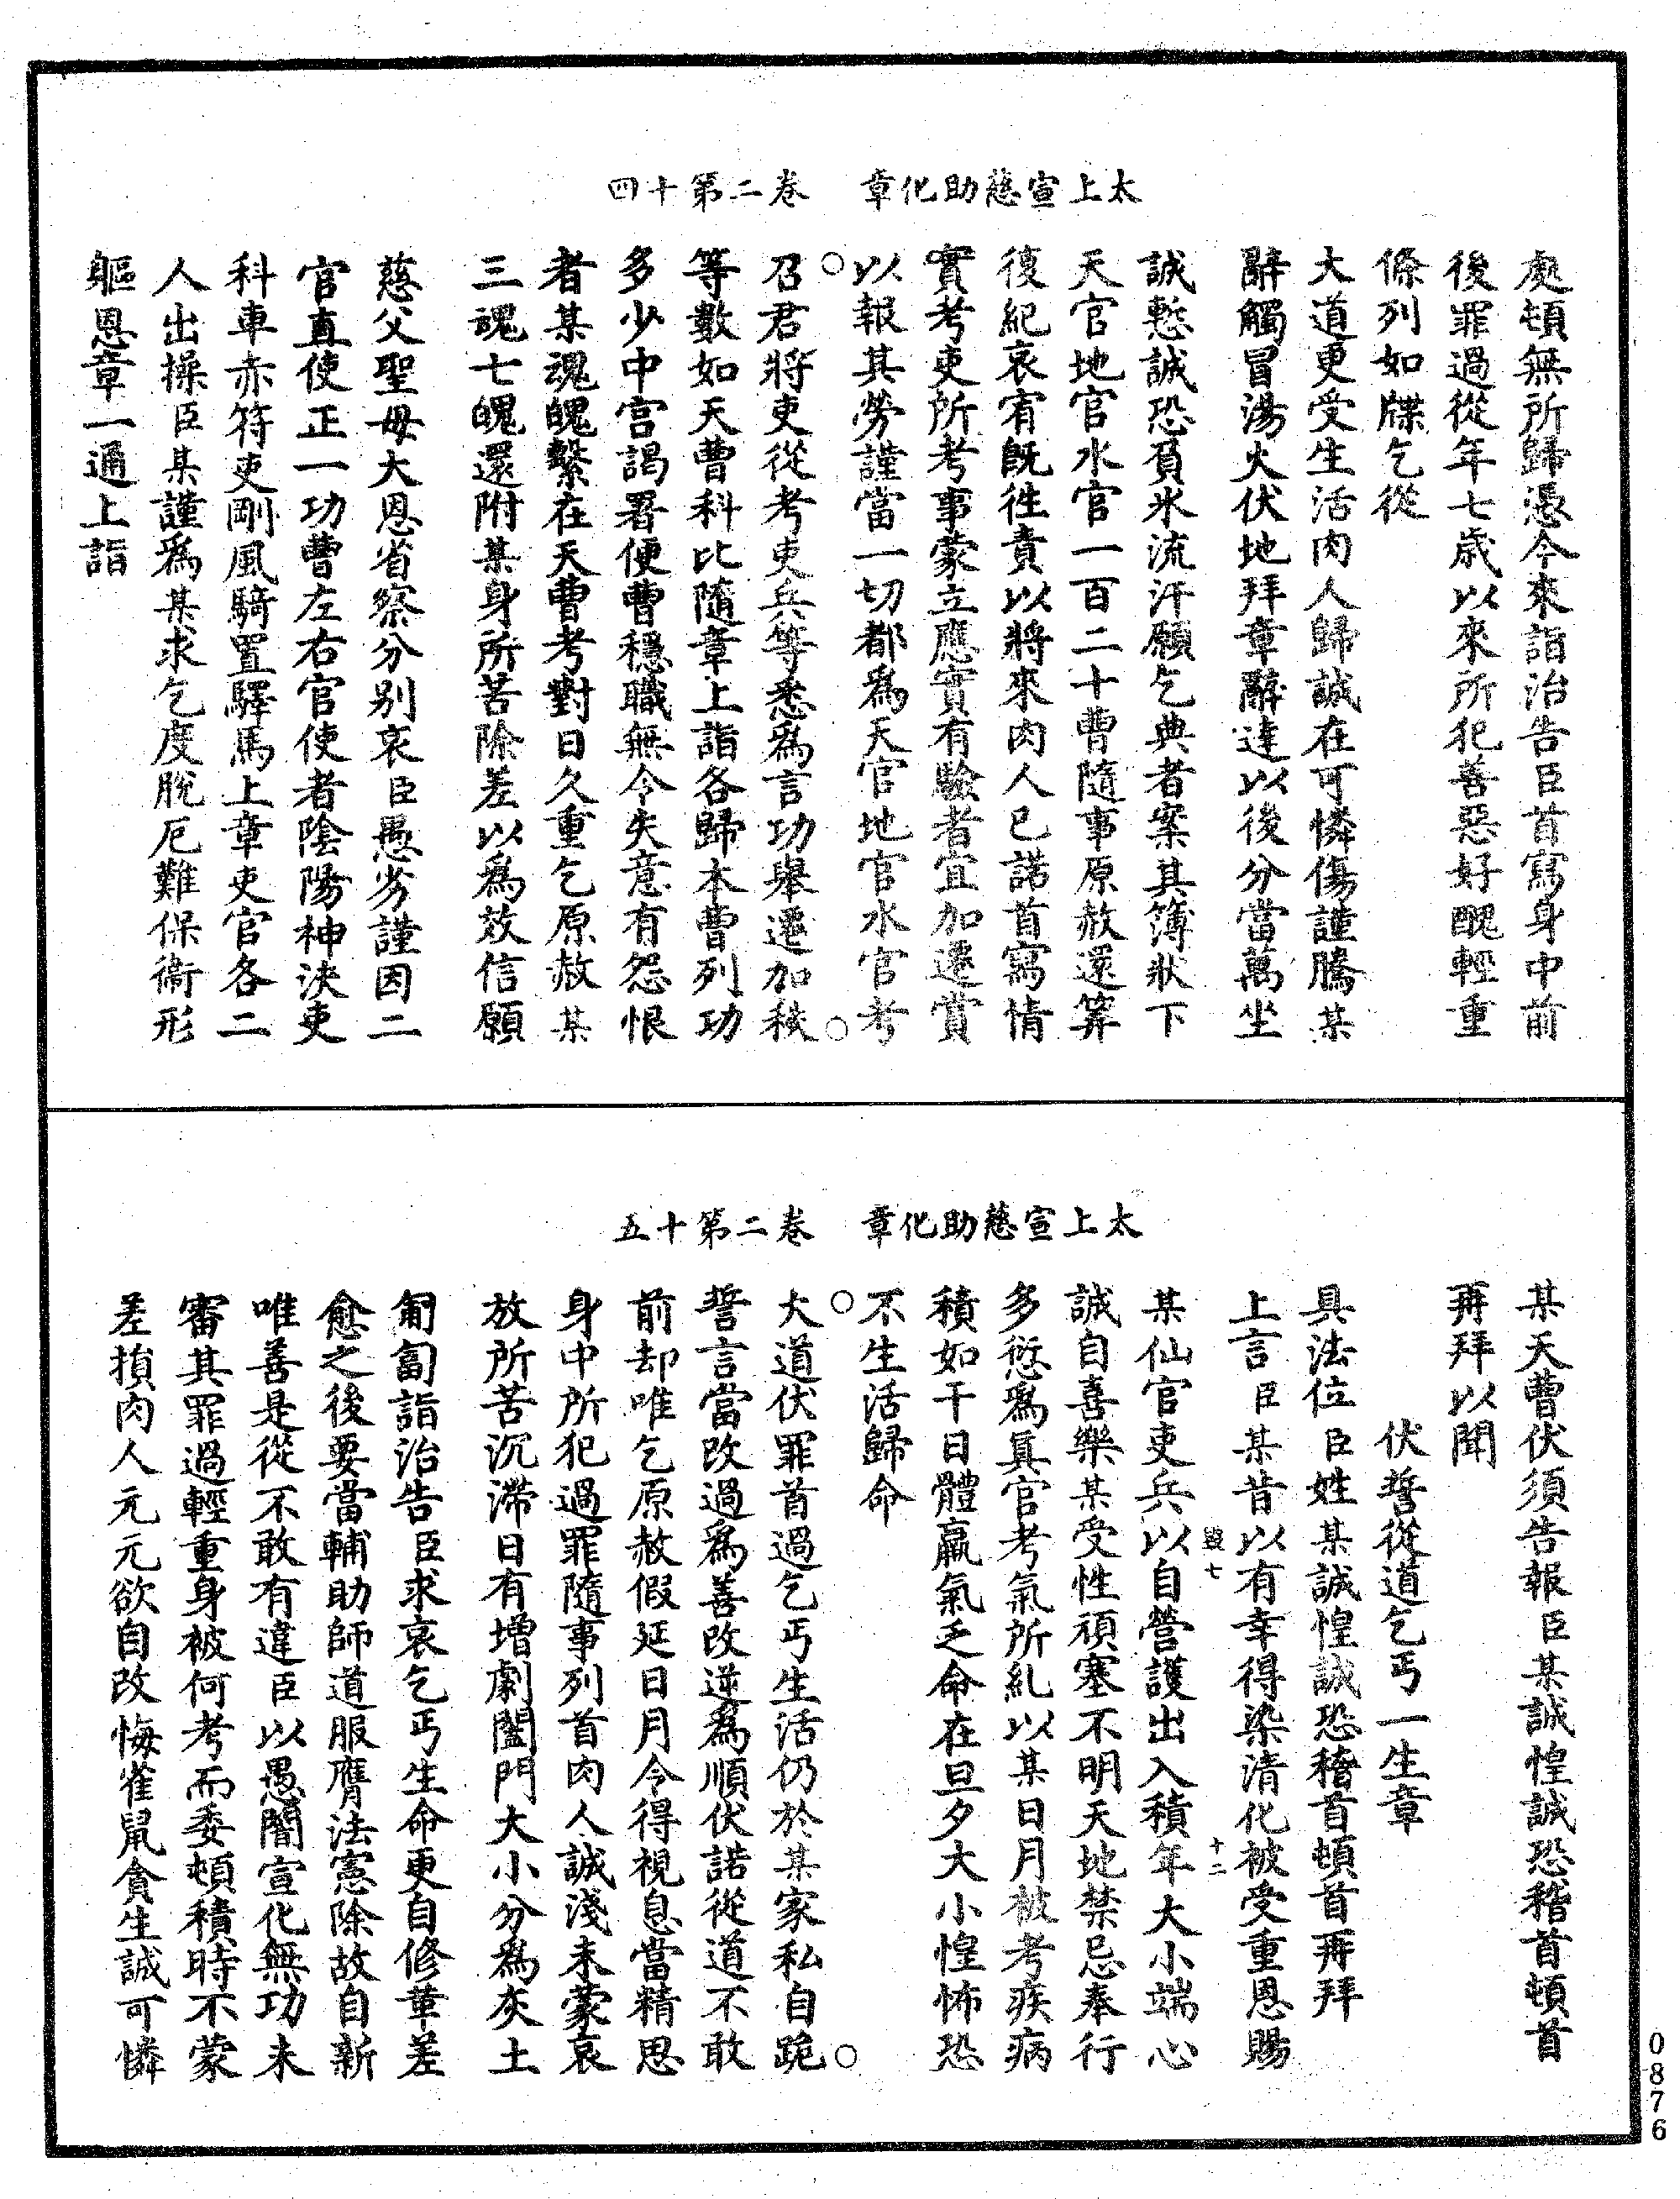 太上宣慈助化章　卷二第十四
處頓無所歸憑今來詣治告臣首寫身中前
後罪過從年七歲以來所犯善惡好醜輕重
條列如牒乞從
大道更受生活肉人歸誠在可憐傷謹騰某
辭觸冒湯火伏地拜章辭達以後分當萬坐
誠慙誠恐負氷流汗願乞典者案其簿狀下
天官地官水官一百二十曹隨事原赦還筭
復紀哀宥旣往責以將來肉人已諾首寫情
實考吏所考事蒙立應實有驗者宜加遷賞
以報其勞謹當一切都爲天官地官水官考
召君將吏從考吏兵等悉爲言功舉遷加秩
等數如天曹科比隨章上詣各歸本曹列功
多少中宮謁署便曹穩職無令失意有怨恨
者某魂魄繫在天曹考對日久重乞原赦某
三魂七魄還附某身所苦除差以爲效信願
慈父聖母大恩省察分別哀臣愚劣謹因二
官直使正一功曹左右官使者陰陽神決吏
科車赤符吏剛風騎置驛馬上章吏官各二
人出操臣某謹爲某求乞度脫厄難保衞形
軀恩章一通上詣
太上宣慈助化章　卷二第十五
某天曹伏須告報臣某誠惶誠恐稽首頓首
再拜以聞
伏誓從道乞丐一生章
具法位臣姓某誠惶誠恐稽首頓首再拜
上言臣某昔以有幸得染清化被受重恩賜
毀七
十二
某仙官吏兵以自營護出入積年大小端心
誠自喜樂某受性頑塞不明天地禁忌奉行
多愆爲眞官考氣所糺以某日月被考疾病
積如干日體羸氣乏命在旦夕大小惶怖恐
不生活歸命
大道伏罪首過乞丐生活仍於某家私自跪
誓言當改過爲善改逆爲順伏諾從道不敢
前却唯乞原赦假延日月今得視息當精思
身中所犯過罪隨事列首肉人誠淺未蒙哀
放所苦沉滯日有增劇闔門大小分爲灰土
匍匐詣治告臣求哀乞丐生命更自修革差
愈之後要當輔助師道服膺法憲除故自新
唯善是從不敢有違臣以愚闇宣化無功未
審其罪過輕重身被何考而委頓積時不蒙
差損肉人元元欲自改悔雀鼠貪生誠可憐
0876